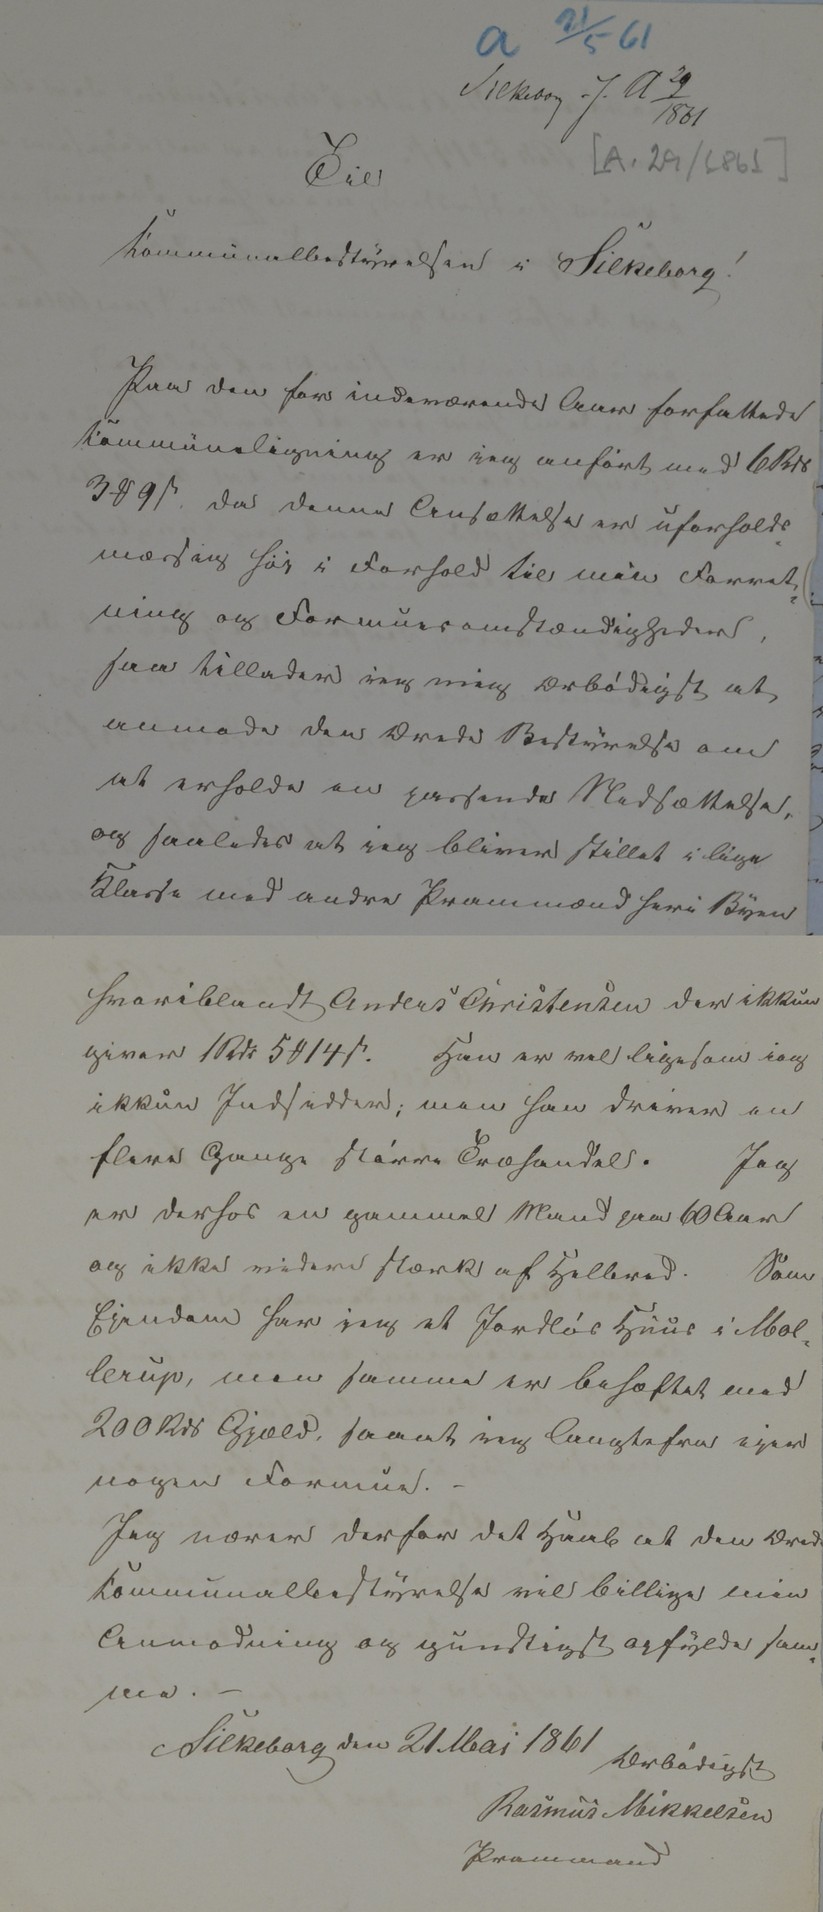 a 21/5 61
Silkeborg J. A 29/1861
[A. 29/1861]
Til
Kommunalbestÿrelsen i Silkeborg!
Paa den for indeværende Aar forfattede
Kommuneligning er jeg anført med 6 Rdr
3 ₰ 9 s. da denne Ansættelse er uforholds-
mæssig høi i Forhold til min Forret-
ning og Formuesomstændigheder,
saa tillader jeg mig ærbødigst at
anmode den ærede Bestÿrelse om
at erholde en passende Nedsættelse,
og saaledes at jeg bliver stillet i lige
Klasse med andre Prammænd her i Bÿen
hvoriblandt Anders Christensen der ikkun
giver 1 Rdr 5 ₰ 14 s. Han er vel ligesom jeg
ikkun Indsidder; men han driver en
flere Gange større Træhandel. Jeg
er derhos en gammel Mand paa 60 Aar
og ikke videre stærk af Helbred. Som
Ejendom har jeg et Jordløs Huus i Mol-
lerup, men samme er behæftet med
200 Rdr Gjæld, samt jeg langtefra ejer
nogen Formue. -
Jeg nærer derfor det Haab at den ærede
Kommunalbestÿrelse vil billige min
Anmodning og gunstigst opfÿlde sam-
me. -
Silkeborg den 21 Mai 1861
Ærbødigst
Rasmus Mikkelsen
Prammand